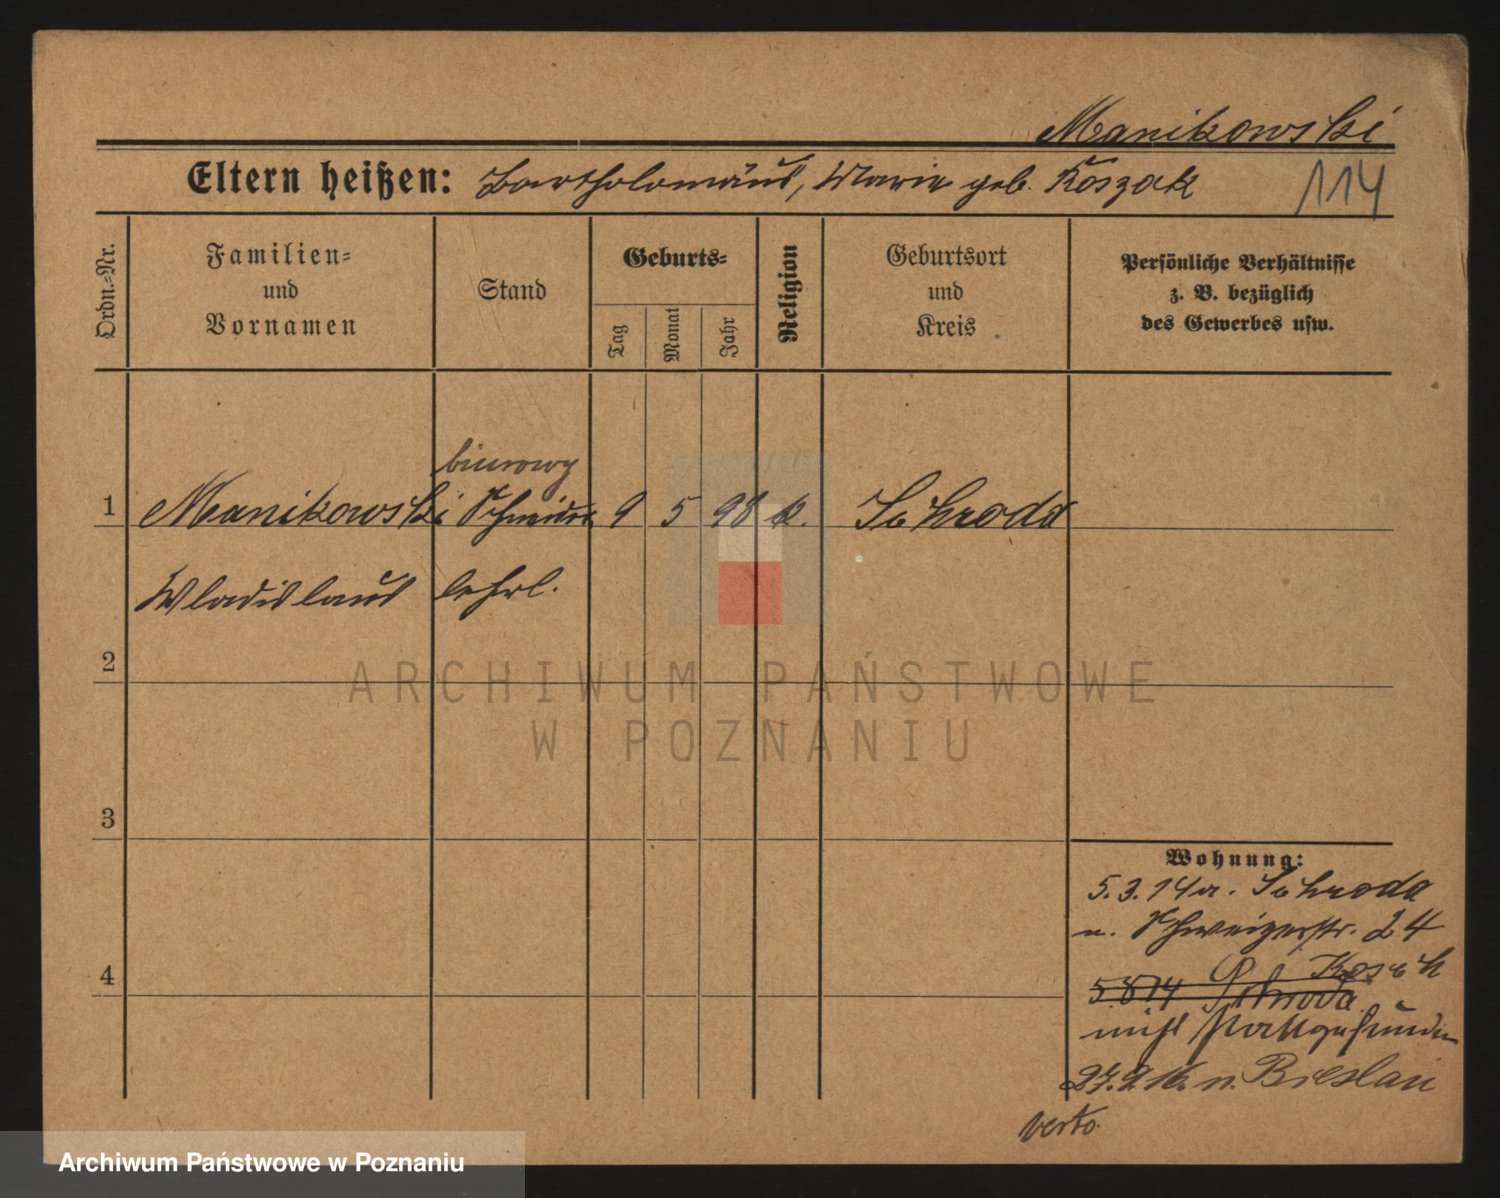 Manikowski
Eltern heißen: Bartholomäus, Marie geb. Koszak
114
Ordn.-Nr.
Familien-
und
Vornamen
Stand
Geburts-
Tag
Monat
Jahr
Religion
Geburtsort
und
Kreis
Persönliche Verhältnisse
z. B. bezüglich
des Gewerbes usw.
1 Manikowski Schneider 9 5 98 k. Schroda
Wladislaus lehrl.
2
ARCHIWUM PAŃSTWOWE
W POZNANIU
3
Wohnung:
5.3.14 a. Schroda
n. Schweizerstr. 24
b/ Kosch
4
5.8.14 Schroda
nicht stattgefunden
27.2.16. n. Breslau
verto.
Archiwum Państwowe w Poznaniu